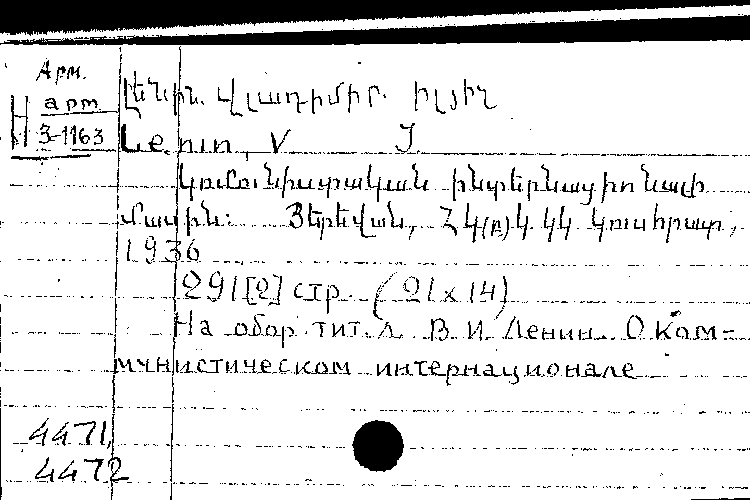 Арм.
арт
3-1163
Լենին. Վլադիմիր. Իլյիչ
Lenin, V I.
Կոմունիստական ինտերնացիոնալի
մասին: Յերեվան, ՀԿ(բ)Կ ԿԿ Կուսհրատ,
1936
291[2] стр. (21 x 14)
На обор. тит. л. В. И. Ленин. О Ком-
мунистическом интернационале
4471,
4472